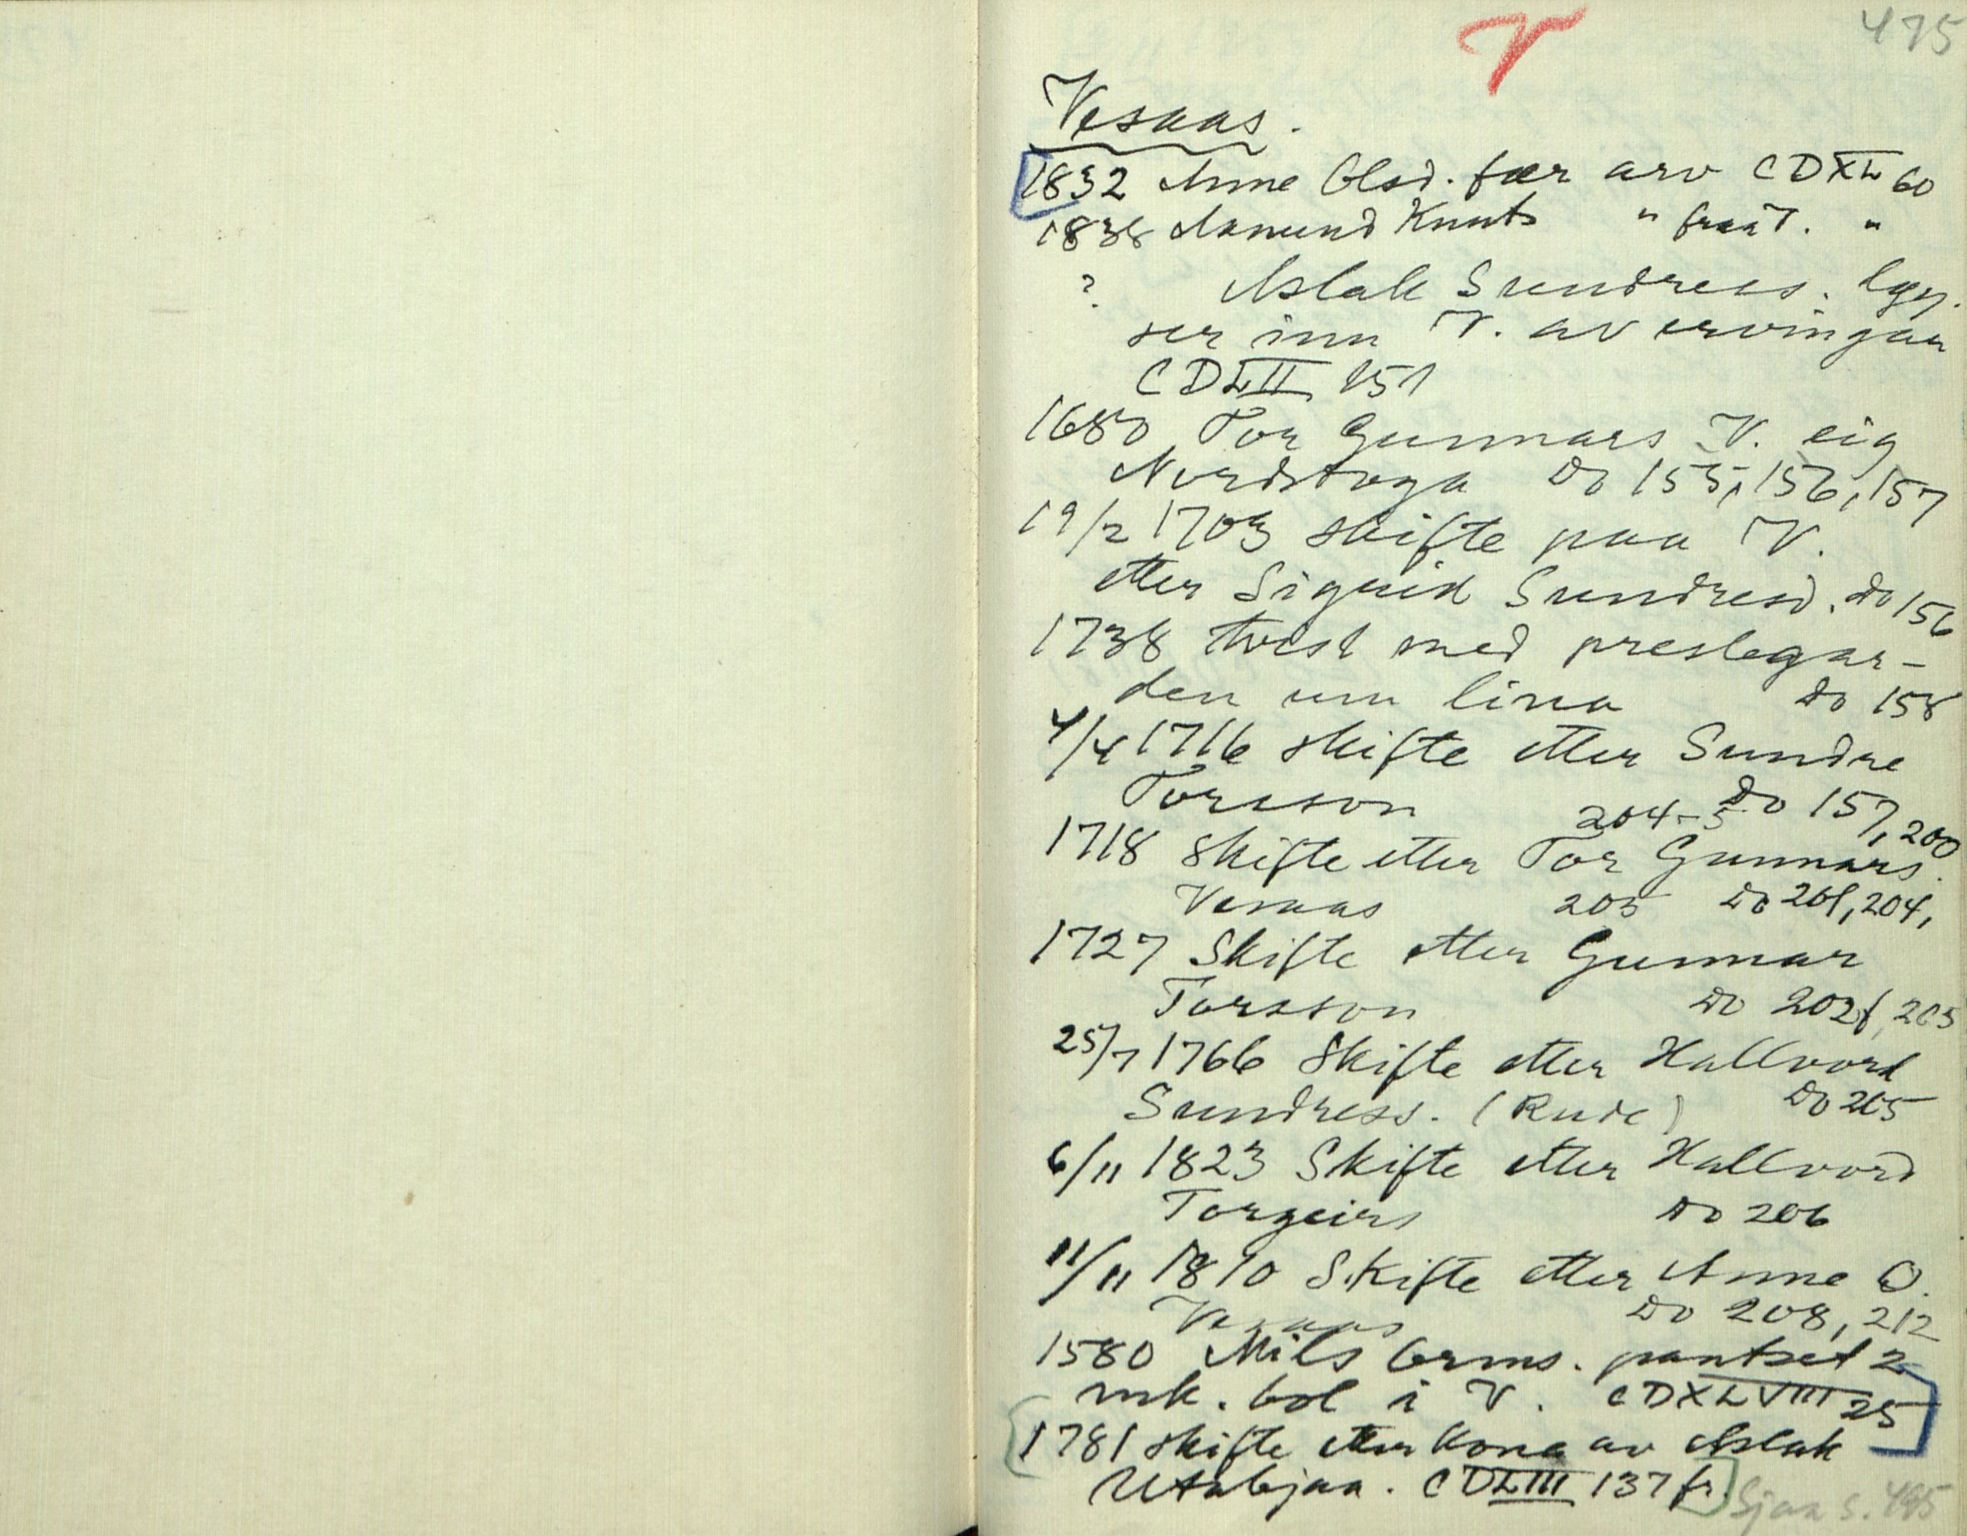 V 475
Vesaas.
1832 Anne Olsd. fær arv CDXL 60
1838 Aamund Knuts " fraaT. "
? Aslak Sundress.løy-
ser inn V. av ervingaa
CDLII 151
1680 Tor Gunnars V. eig
Nordstoga Do 155, 156, 157
19/2 1703 skifte paa V.
etter Sigrid Sundresd. do 156
1738 tvist med preslegar-
den um lina do 158
4/4 1716 skifte etter Sundre
Torsson Do 157, 200
204-5
1718 Skifte etter Tor Gunnars.
Vesaas 205 Do 201, 204,
1727 Skifte etter Gunnar
Torsson Do 202f, 205
25/7 1766 Skifte etter Hallvord
Sundress. (Rude) Do 205
6/11 1823 Skifte etter Hallvord
Torgeirs Do 206
11/11 1810 Skifte etter Anne O.
Vesaas Do 208, 212
1580 Nils Orms. pantset 2
mk. bol i V. CDXLVIII 25
1781 skifte etter kona av Aslak
Utabjaa. CDLIII 137 fr.
Sjaa s. 495